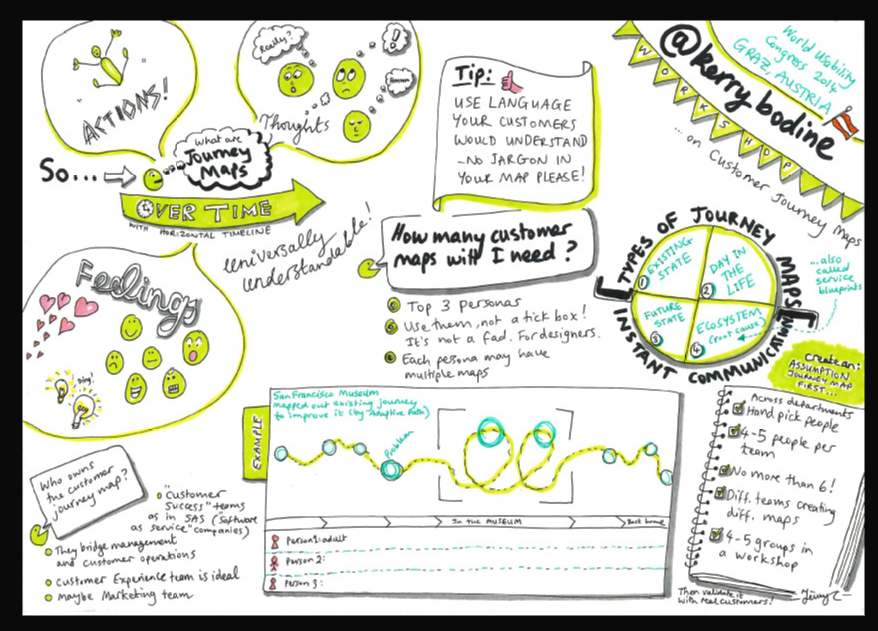 ACTIONS!
Really?
!?
Hmmm
Thoughts
So...
What are
Journey
Maps
OVER TIME
WITH HORIZONTAL TIMELINE
universally
understandable!
Feelings
Ding!
Tip:
USE LANGUAGE
YOUR CUSTOMERS
WOULD UNDERSTAND
–NO JARGON IN
YOUR MAP PLEASE!
World Usability
Congress 2014
GRAZ, AUSTRIA
@kerry bodine
WORKSHOP
...on Customer Journey Maps
How many customer
maps will I need?
Top 3 personas
Use them, not a tick box!
It's not a fad. For designers.
Each persona may have
multiple maps
TYPES OF JOURNEY MAPS
INSTANT COMMUNICATION
1 EXISTING
STATE
2 DAY IN
THE
LIFE
3 FUTURE
STATE
4 ECOSYSTEM
(root cause)
...also
called
service
blueprints
create an:
ASSUMPTION
JOURNEY MAP
FIRST...
Across departments
Hand pick people
4-5 people per
team
No more than 6!
Diff. teams creating
diff. maps
4-5 groups in
a workshop
Then validate it
with real customers!
EXAMPLE
San Francisco Museum
mapped out existing journey
to improve it (by Adaptive Path)
Problem
IN the MUSEUM
Back home
Person 1: adult
Person 2:
Person 3:
Who owns
the customer
journey map?
"Customer
Success" teams
as in SAS (Software
as service" companies)
They bridge management
and customer operations
Customer Experience team is ideal
Maybe Marketing team